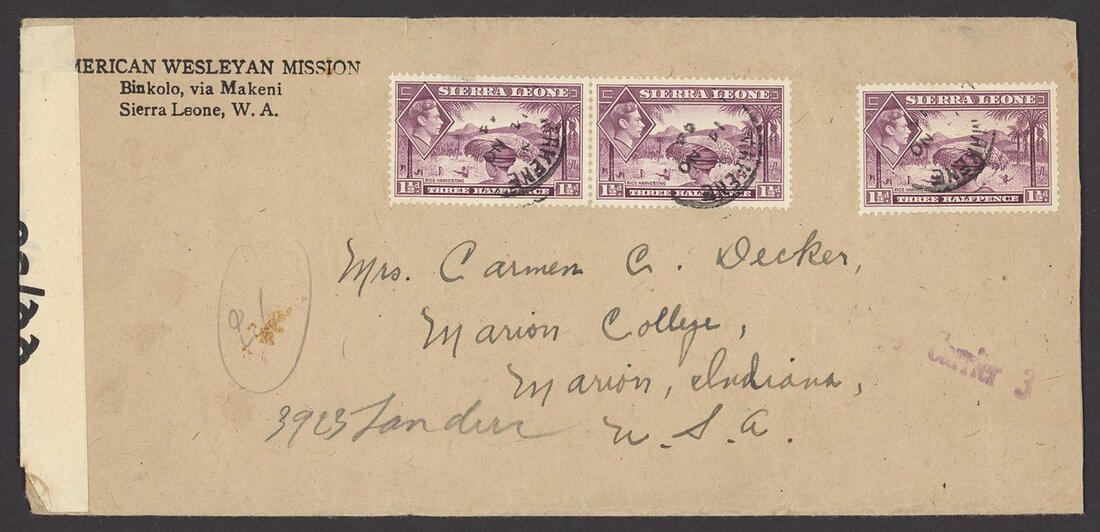 MERICAN WESLEYAN MISSION
Binkolo, via Makeni
Sierra Leone, W. A.
SIERRA LEONE
RICE HARVESTING
1½d THREE HALFPENCE 1½d
SIERRA LEONE
RICE HARVESTING
1½d THREE HALFPENCE 1½d
SIERRA LEONE
RICE HARVESTING
1½d THREE HALFPENCE 1½d
Mrs. Carmen C. Decker,
Marion College,
Marion, Indiana,
U. S. A.
3923 Landers
Carrier 3